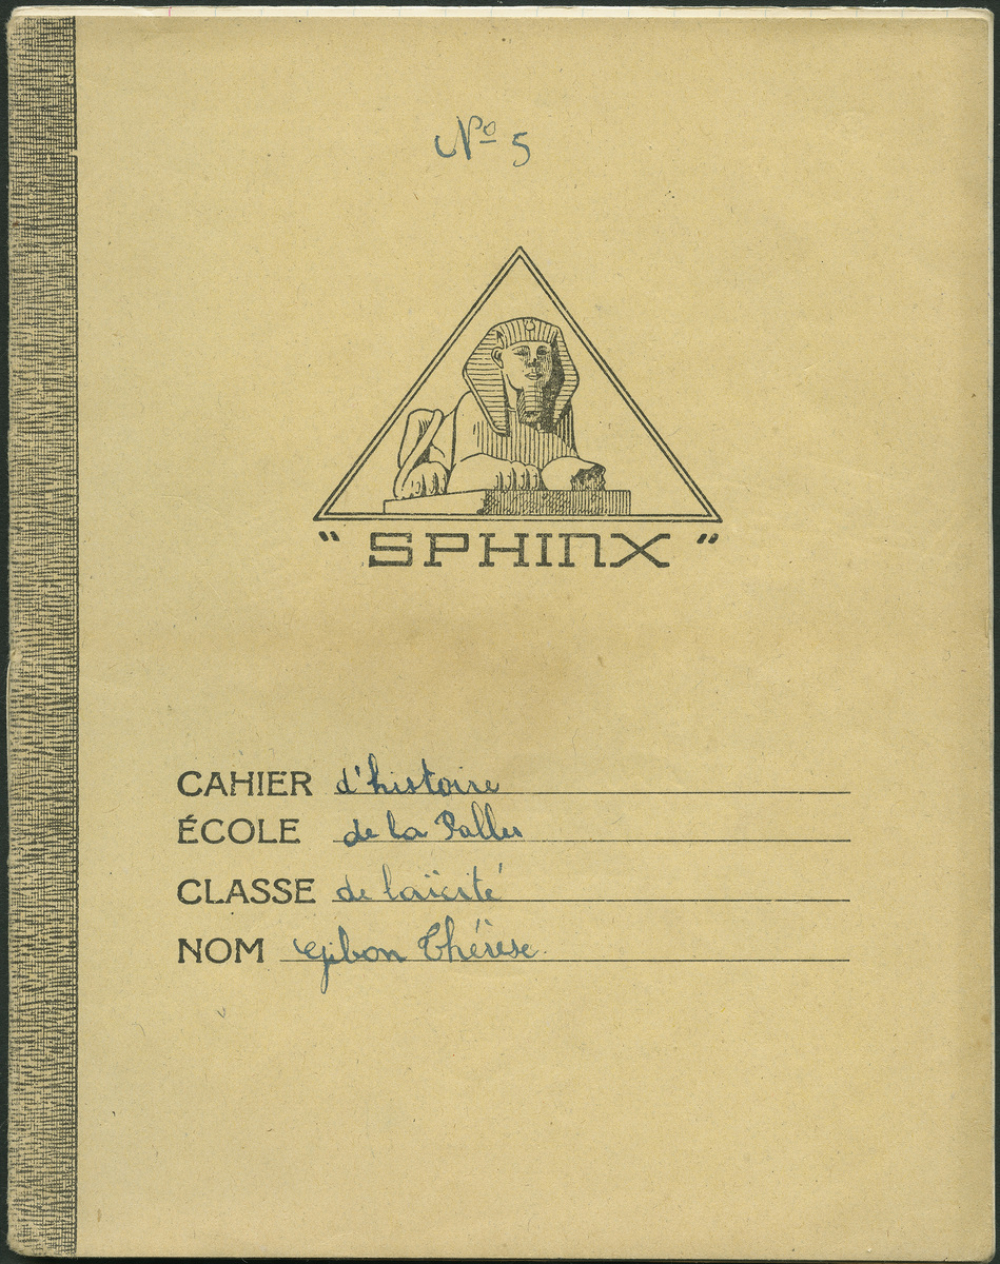 Nº 5
" SPHINX "
CAHIER d'histoire
ÉCOLE de la
CLASSE de laïcité
NOM Gibon Thérèse